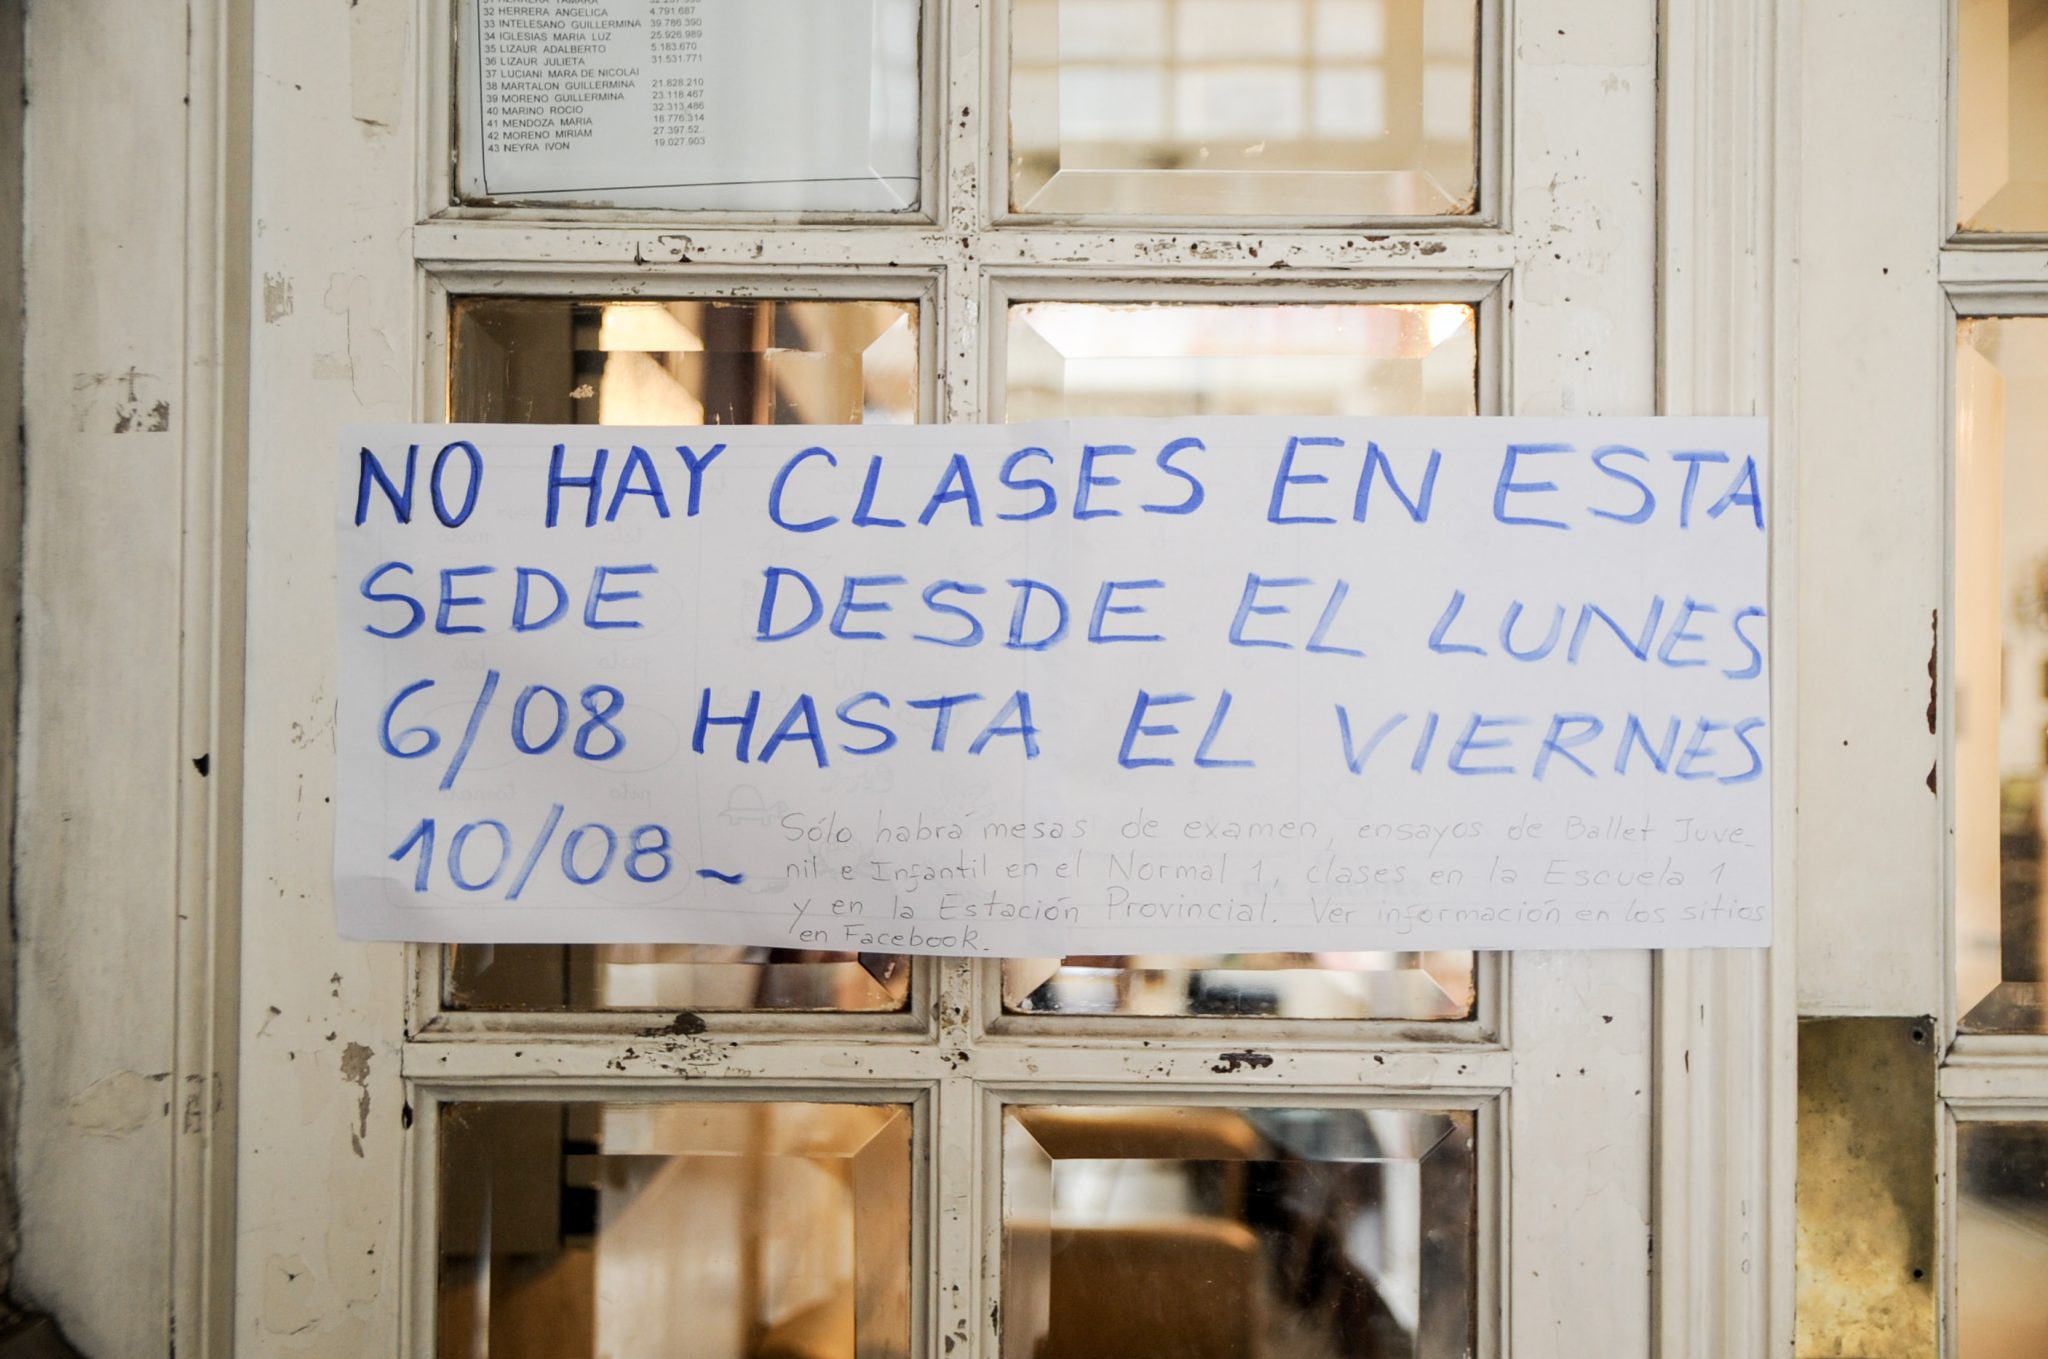 32 HERRERA ANGELICA 4.791.687
33 INTELESANO GUILLERMINA 39.786.390
34 IGLESIAS MARIA LUZ 25.926.989
35 LIZAUR ADALBERTO 5.183.670
36 LIZAUR JULIETA 31.531.771
37 LUCIANI MARA DE NICOLAI
38 MARTALON GUILLERMINA 21.828.210
39 MORENO GUILLERMINA 23.118.467
40 MARINO ROCIO 32.313.486
41 MENDOZA MARIA 18.776.314
42 MORENO MIRIAM 27.397.52
43 NEYRA IVON 19.027.903
NO HAY CLASES EN ESTA
SEDE DESDE EL LUNES
6/08 HASTA EL VIERNES
10/08 ~
Sólo habrá mesas de examen, ensayos de Ballet Juve-
nil e Infantil en el Normal 1, clases en la Escuela 1
y en la Estación Provincial. Ver información en los sitios
en Facebook.